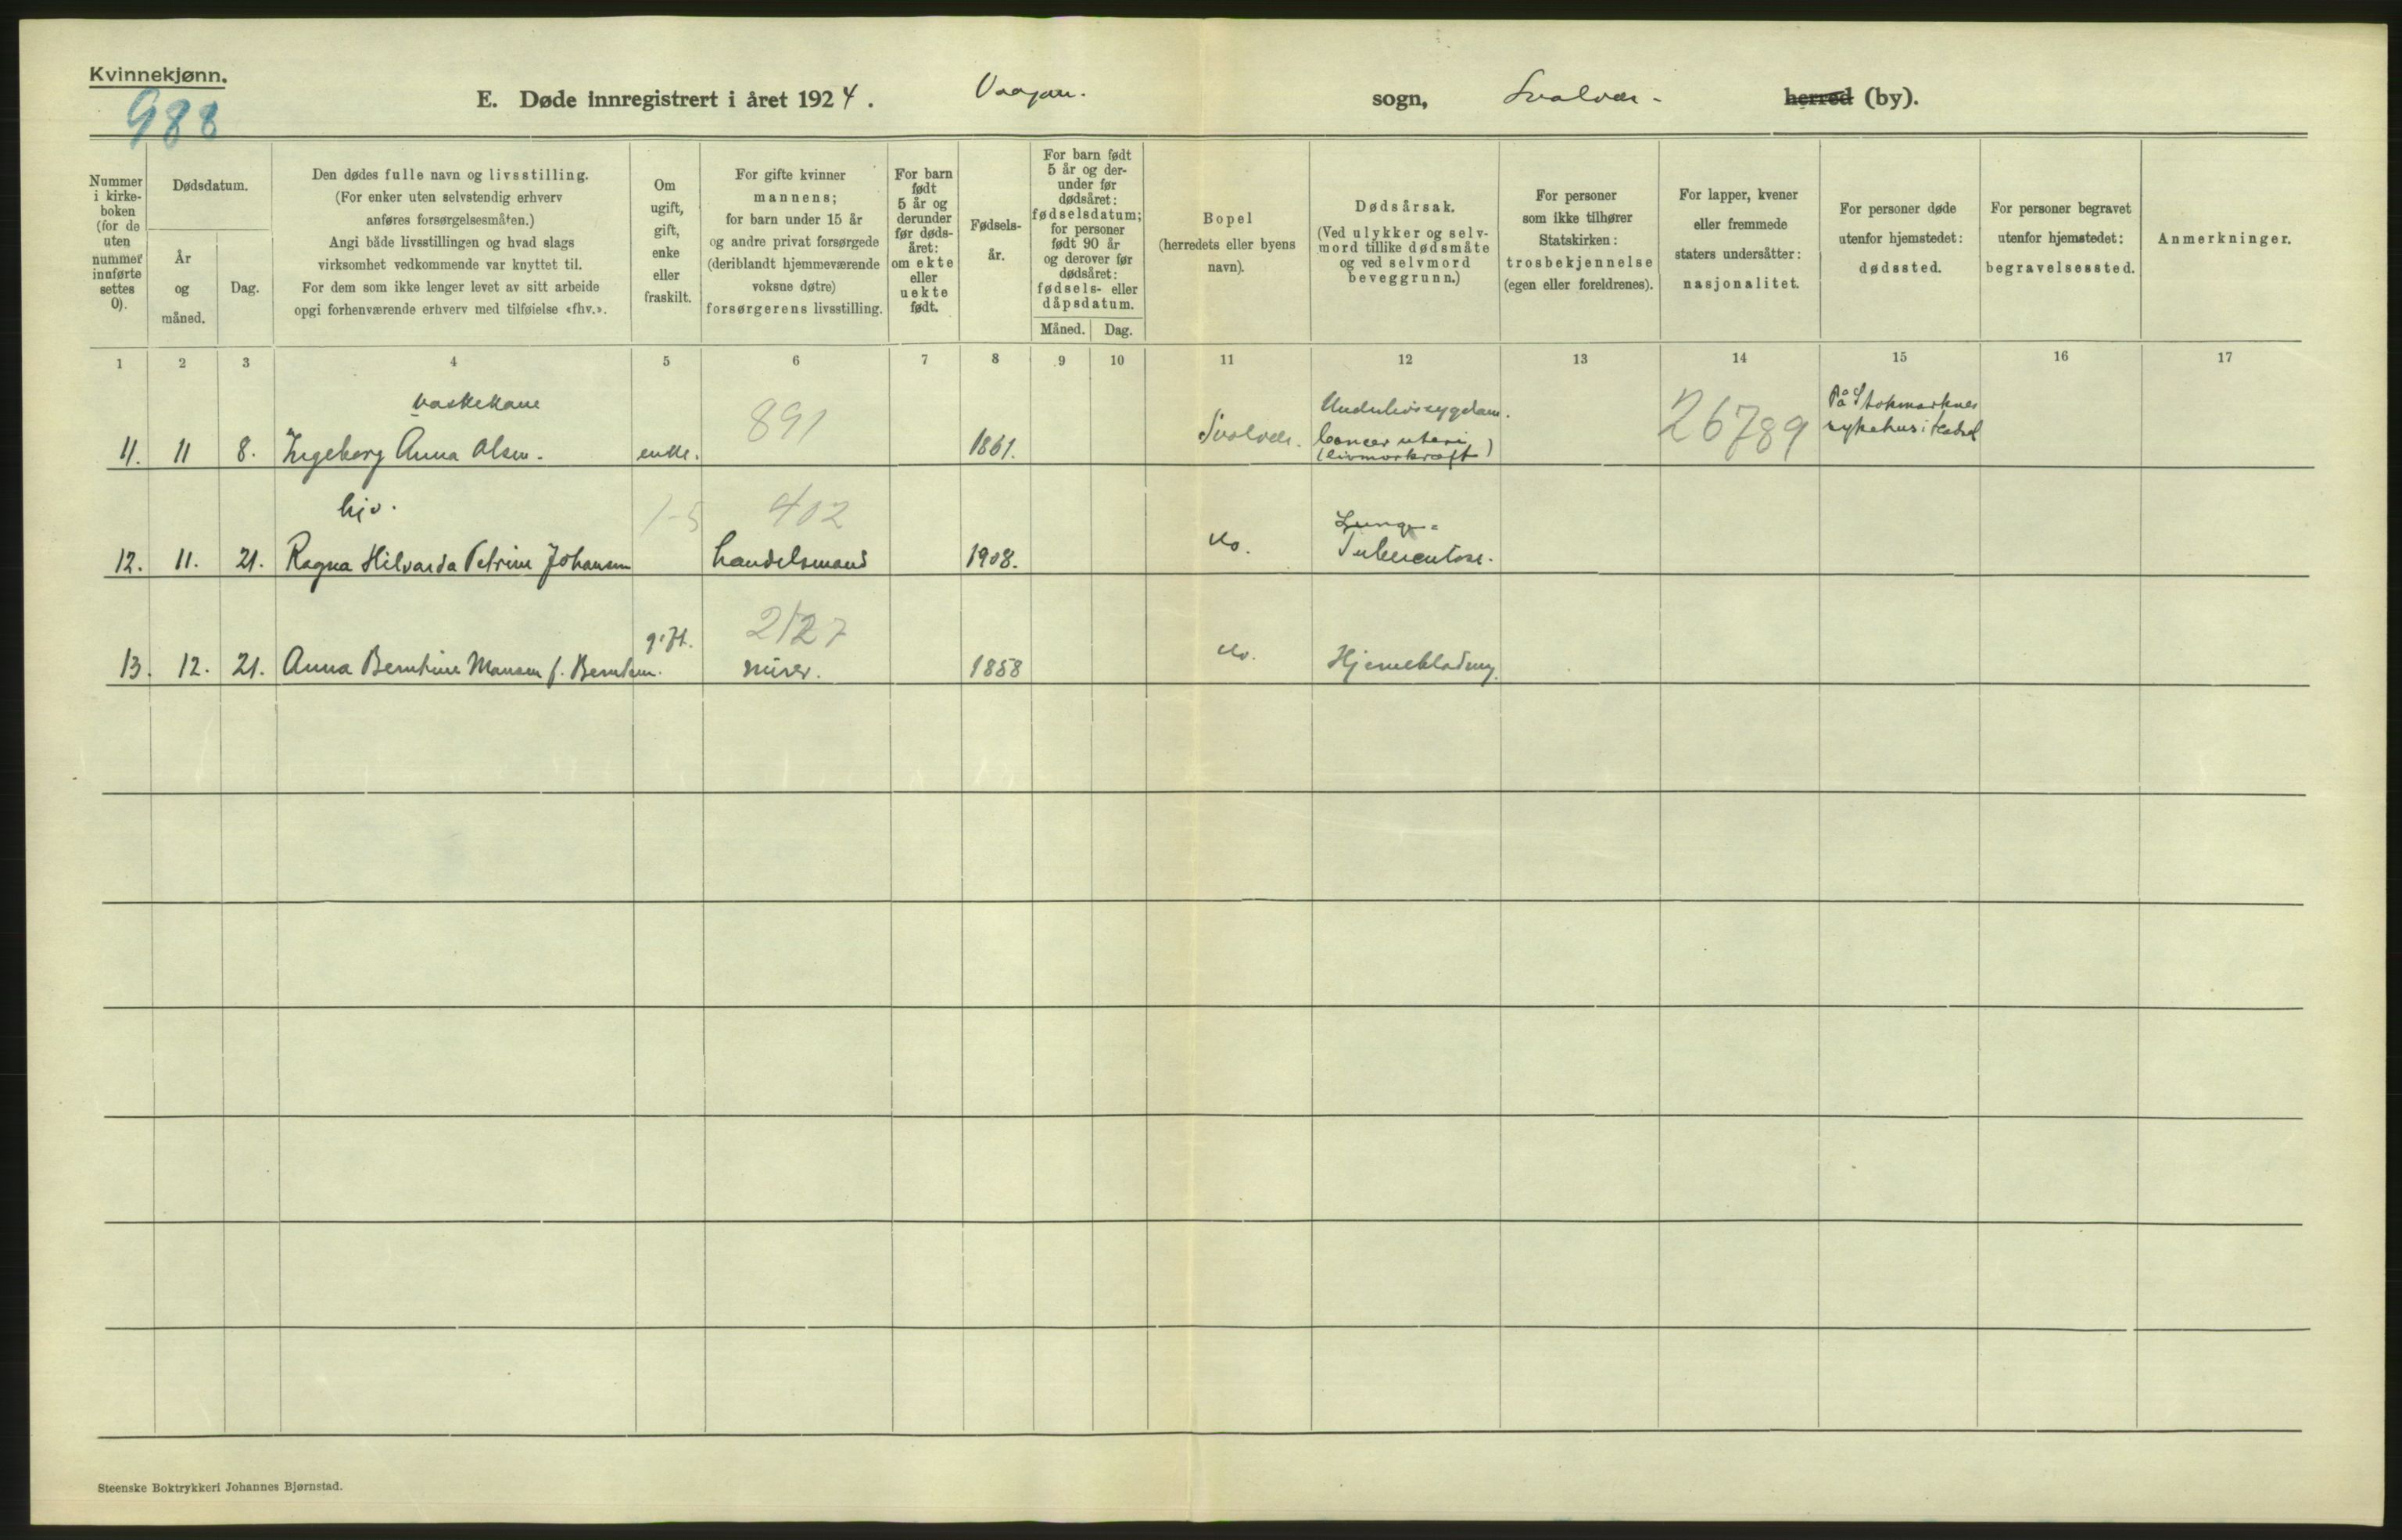 Kvinnekjønn.
988
E. Døde innregistrert i året 1924. Vaagan. sogn, Svolvær - herred (by).
Nummer i kirke- boken (for de uten nummer innførte settes 0).
Dødsdatum.
År og måned.
Dag.
Den dødes fulle navn og livsstilling.
(For enker uten selvstendig erhverv
anføres forsørgelsesmåten.)
Angi både livsstillingen og hvad slags
virksomhet vedkommende var knyttet til.
For dem som ikke lenger levet av sitt arbeide
opgi forhenværende erhverv med tilføielse «fhv.».
Om ugift, gift, enke eller fraskilt.
For gifte kvinner
mannens;
for barn under 15 år
og andre privat forsørgede
(deriblandt hjemmeværende
voksne døtre)
forsørgerens livsstilling.
For barn født 5 år og derunder før døds- året: om ekte eller uekte født.
Fødsels- år.
For barn født 5 år og der- under før dødsåret: fødselsdatum; for personer født 90 år og derover før dødsåret: fødsels- eller dåpsdatum.
Måned. Dag.
Bopel
(herredets eller byens
navn).
Dødsårsak.
(Ved ulykker og selv-
mord tillike dødsmåte
og ved selvmord
beveggrunn.)
For personer
som ikke tilhører
Statskirken:
trosbekjennelse
(egen eller foreldrenes).
For lapper, kvener
eller fremmede
staters undersåtter:
nasjonalitet.
For personer døde
utenfor hjemstedet:
dødssted.
For personer begravet
utenfor hjemstedet:
begravelsessted.
Anmerkninger.
1 2 3 4 5 6 7 8 9 10 11 12 13 14 15 16 17
vaskekone
11. 11 8. Ingeborg Anna Olsen. enke. 891 1861. Svolvær. Underlivssygdom.
Cancer uteri
(livmorkræft)
26789
På Stokmarknes
sykehus i Hadsel
hjv.
12. 11. 21. Ragna Hilvarda Petrine Johansen 1-5 402
handelsmand 1908. do. Lunge-
Tuberculose.
13. 12. 21. Anna Berntine Monsen f. Berntsen. gift. 2127
murer. 1858 do. Hjerneblødning.
Steenske Boktrykkeri Johannes Bjørnstad.